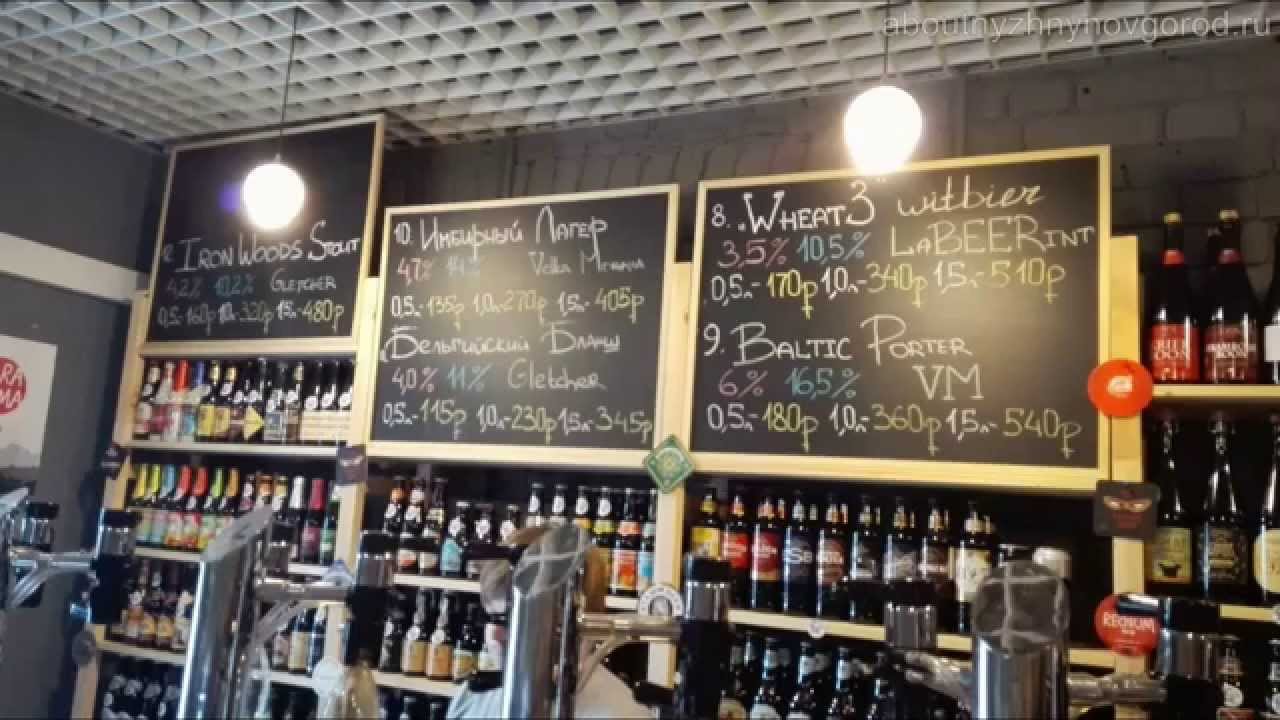 aboutnyzhnynovgorod.ru
Iron Woods Stout
4,2% 10,2% Gletcher
0,5л-160р 1,0л-320р 1,5л-480р
10. Имбирный Лагер
4,7%
0,5л-135р 1,0л-270р 1,5л-405р
Бельгийский Бланш
4,0% 11% Gletcher
0,5л-115р 1,0л-230р 1,5л-345р
8. "Wheat3" witbier
3,5% 10,5% LaBEERint
0,5л-170р 1,0л-340р 1,5л-510р
9. Baltic Porter
6% 16,5% VM
0,5л-180р 1,0л-360р 1,5л-540р